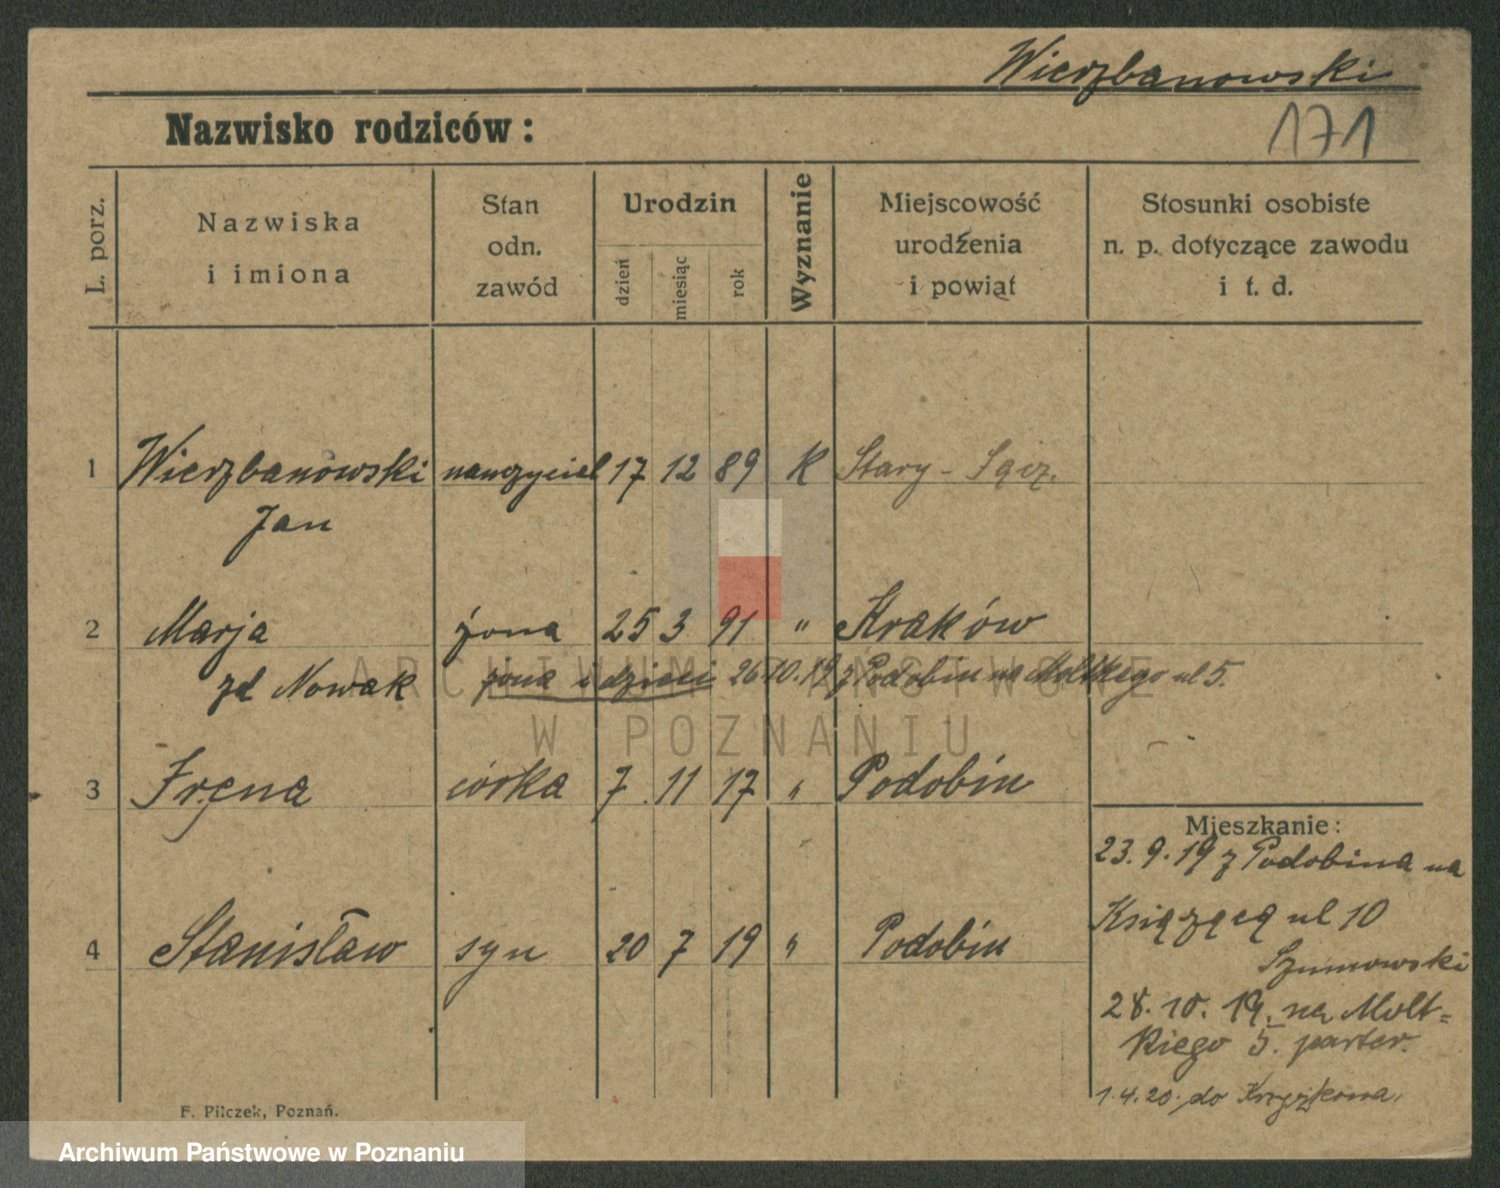 Wierzbanowski
171
Nazwisko rodziców:
L. porz.
Nazwiska
i imiona
Stan
odn.
zawód
Urodzin
dzień
miesiąc
rok
Wyznanie
Miejscowość
urodzenia
i powiat
Stosunki osobiste
n. p. dotyczące zawodu
i t. d.
1 Wierzbanowski nauczyciel 17 12 89 K Stary - Sącz.
Jan
2 Marja żona 25 3 91 " Kraków
zd Nowak żona i dzieci 26.10.19 z Podobin na Moltkego ul 5.
ARCHIWUM PAŃSTWOWE
W POZNANIU
3 Irena córka 7 11 17 " Podobin
Mieszkanie:
23.9.19 z Podobina na
Książęcą ul 10
Szumowski
4 Stanisław syn 20 7 19 " Podobin
28.10.19. na Molt=
kiego 5. parter.
1.4.20. do
F. Pilczek, Poznań.
Archiwum Państwowe w Poznaniu